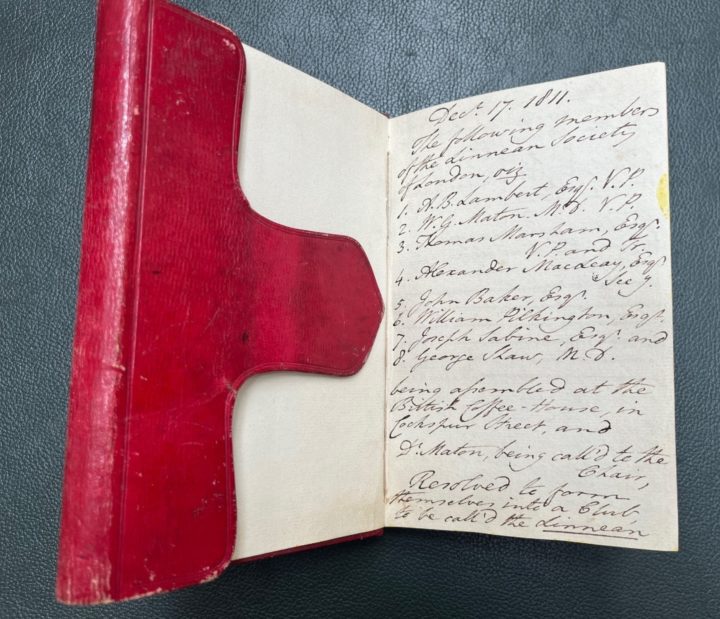 Decr. 17. 1811.
The following members
of the Linnean Society
of London, viz
1. A.B. Lambert, Esqr. V.P.
2. W.G. Maton. M.D. V.P.
3. Thomas Marsham, Esqr.
V.P. and Tr.
4. Alexander MacLeay, Esqr
Secy.
5. John Baker, Esqr.
6. William Pilkington, Esqr.
7. Joseph Sabine, Esqr. and
8. George Shaw, M.D.
being assembled at the
British Coffee-House, in
Cockspur Street, and
Dr. Maton, being call'd to the
Chair,
Resolved to form
themselves into a Club,
to be call'd the Linnean